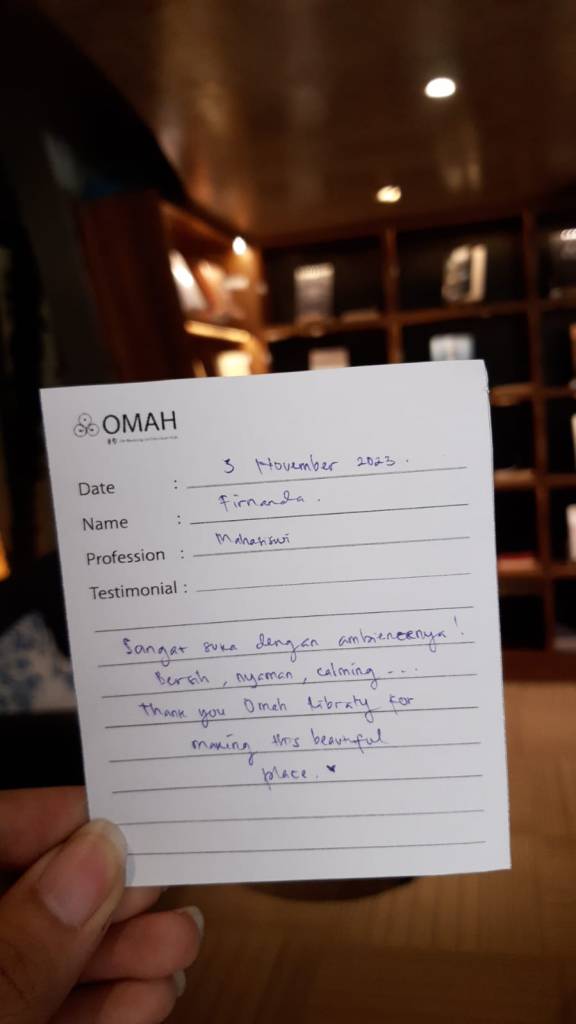 OMAH
Date : 3 November 2023.
Name : Firnanda.
Profession : Mahasiswi
Testimonial :
Sangat suka dengan ambiencenya!
Bersih, nyaman, calming...
Thank you Omah Library for
making this beautiful
place. ♥